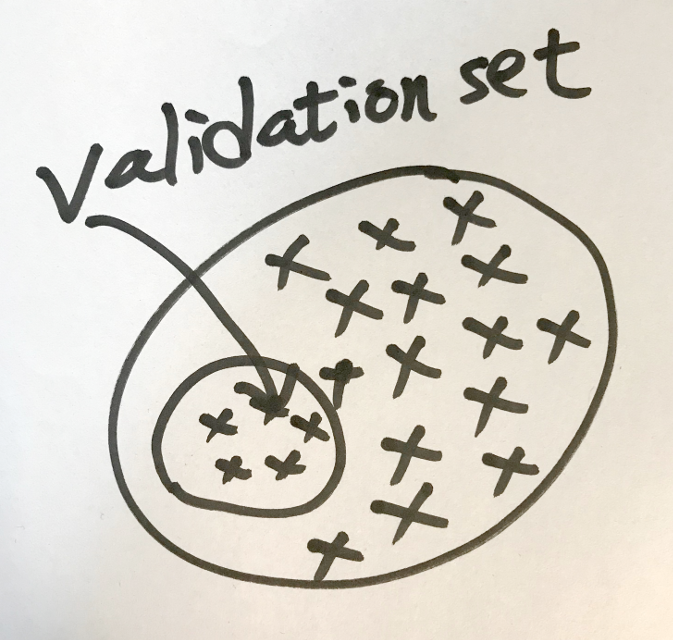 Validation set